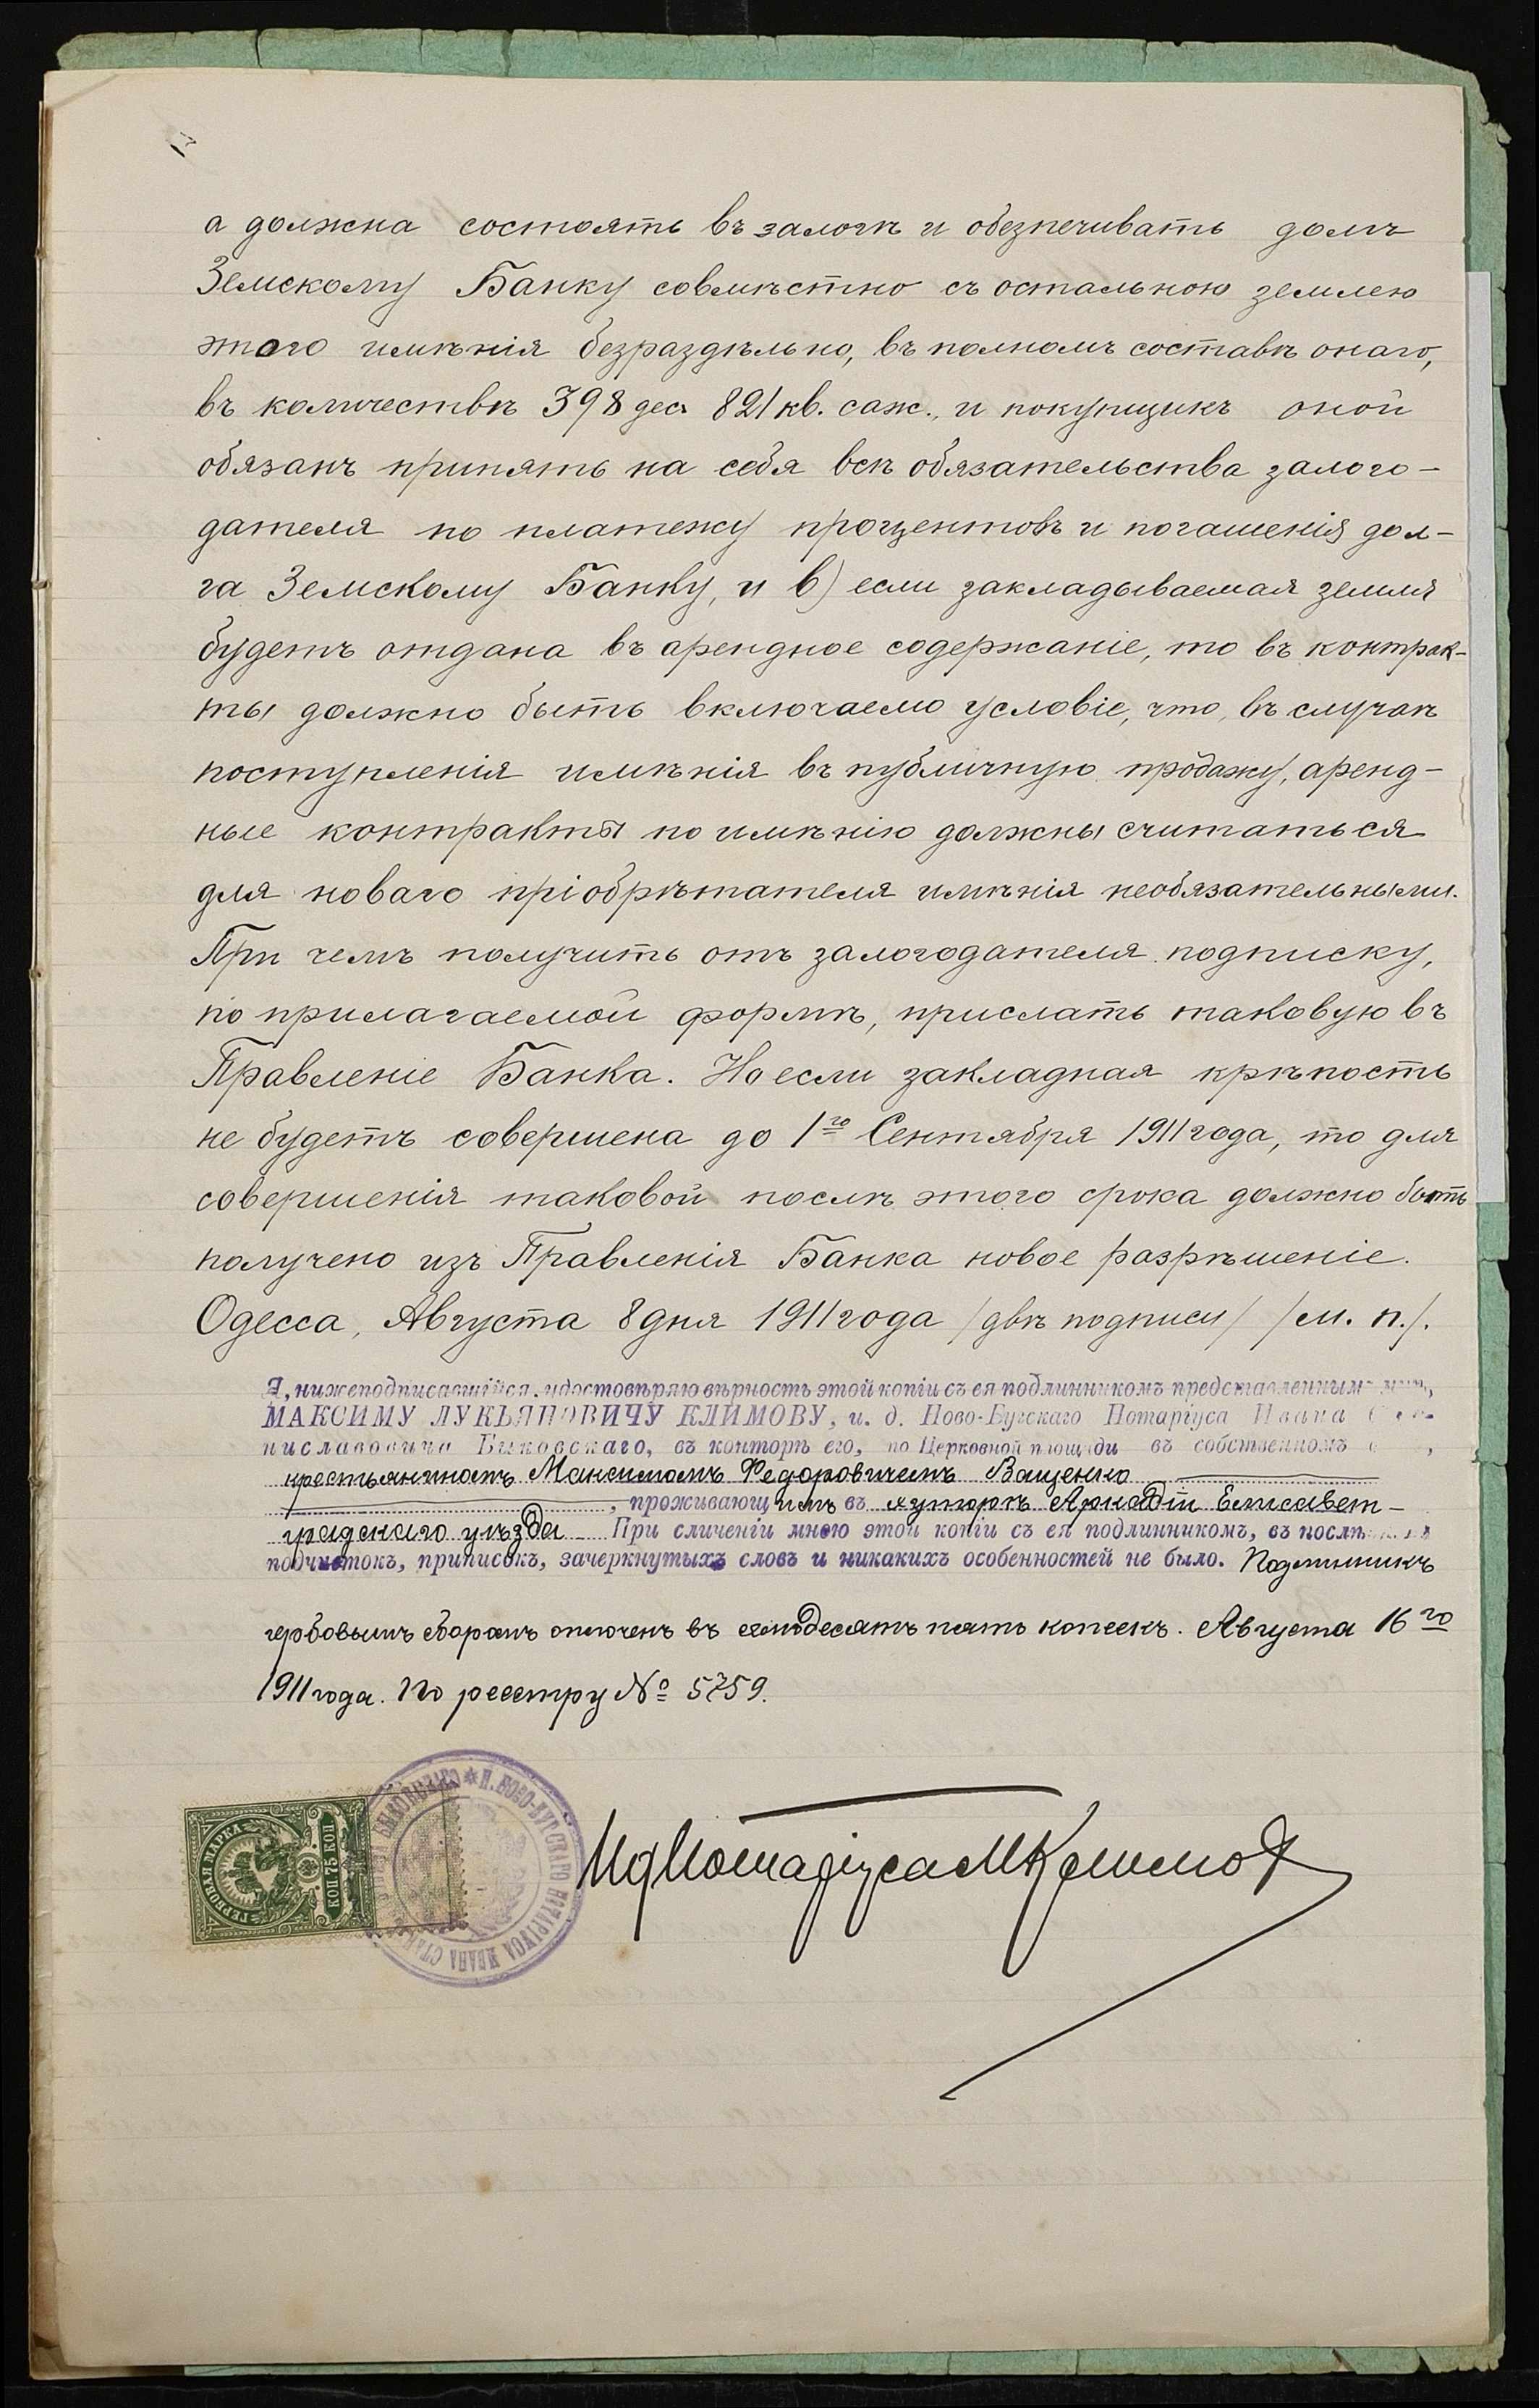 а должна состоять въ залогѣ и обезпечивать долгъ
Земскому Банку совмѣстно съ остальною землею
этого имѣнія безраздѣльно, въ полномъ составѣ онаго,
въ количествѣ 398 дес. 821 кв. саж., и покупщикъ оной
обязанъ принять на себя всѣ обязательства залого-
дателя по платежу процентовъ и погашенія дол-
га Земскому Банку, и в) если закладываемая земля
будетъ отдана въ арендное содержаніе, то въ контрак-
ты должно быть включаемо условіе, что, въ случаѣ
поступленія имѣнія въ публичную продажу, аренд-
ные контракты по имѣнію должны считаться
для новаго пріобрѣтателя имѣнія необязательными.
При чемъ получить отъ залогодателя подписку,
по прилагаемой формѣ, прислать таковую въ
Правленіе Банка. Но если закладная крѣпость
не будетъ совершена до 1го Сентября 1911 года, то для
совершенія таковой послѣ этого срока должно быть
получено изъ Правленія Банка новое разрѣшеніе.
Одесса, Августа 8 дня 1911 года /двѣ подписи/ /м. п./.
Я, нижеподписавшійся, удостовѣряю вѣрность этой копіи съ ея подлинникомъ представленнымъ мнѣ,
МАКСИМУ ЛУКЬЯНОВИЧУ КЛИМОВУ, и. д. Ново-Бугскаго Нотаріуса Ивана Ста-
ниславовича Быковскаго, въ конторѣ его, по Церковной площади въ собственномъ
крестьяниномъ Максимомъ Федоровичемъ Ващенко
, проживающимъ въ хуторѣ Аркадіи Елисавет-
градскаго уѣзда При сличеніи мною этой копіи съ ея подлинникомъ, въ послѣднемъ
подчистокъ, приписокъ, зачеркнутыхъ словъ и никакихъ особенностей не было. Подлинникъ
гербовымъ сборомъ оплоченъ въ семьдесятъ пять копеекъ. Августа 16го
1911 года. По реестру № 5759.
ГЕРБОВАЯ МАРКА
КОП 75 КОП
И. НОВО-БУГСКАГО НОТАРІУСА ИВАНА СТАН
И д Нотаріуса М Климов